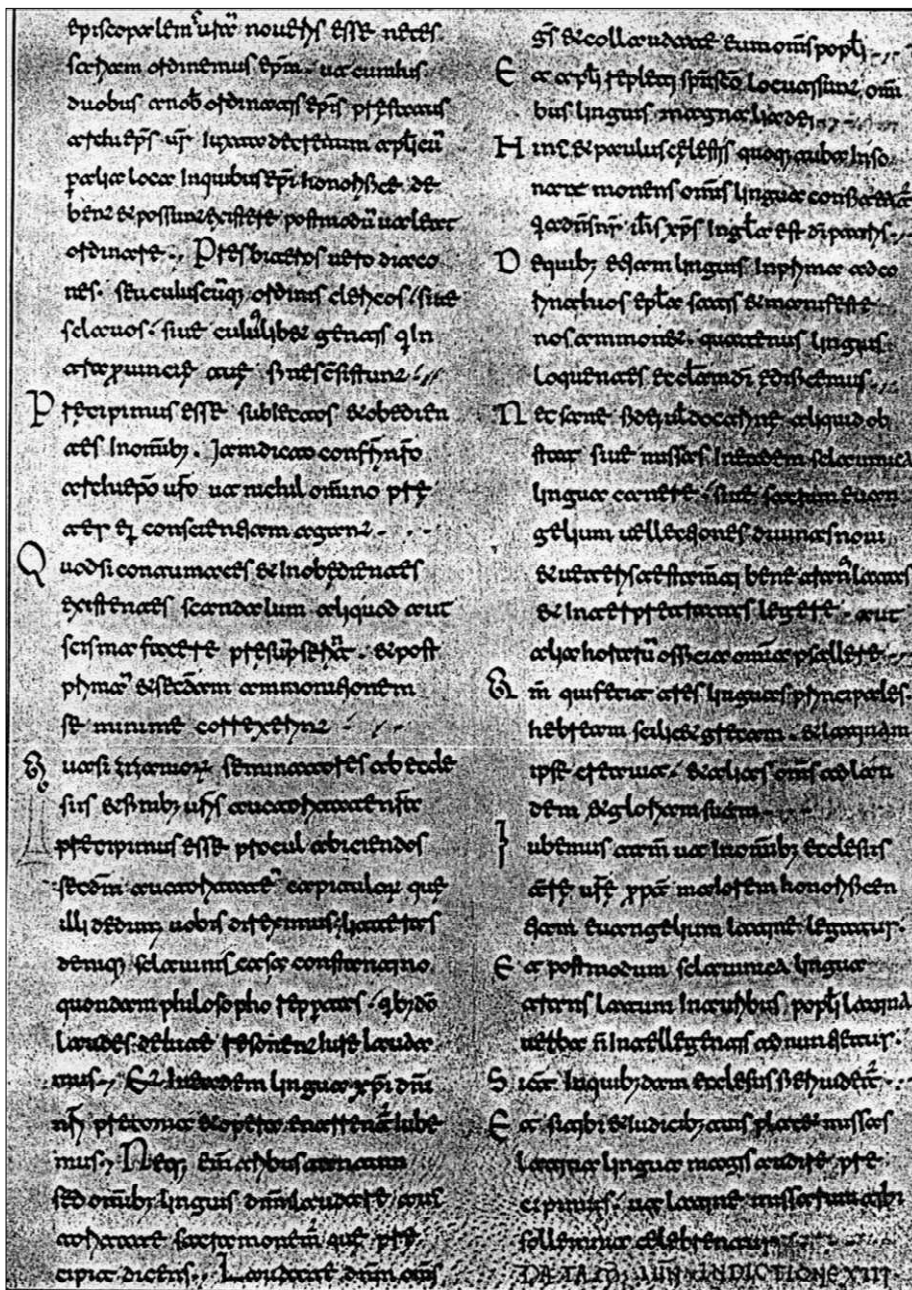 episcopalem uita noueris esse neces
sariam ordinemus epm. ut cum his
duobus a nob ordinatis epis prefatus
archieps ur iuxta decretum aplicu
p alia loca in quibus epi honorifice de
bent & possunt existere postmodu ualeat
ordinare. Presbiteros uero diaco
nes. seu cuiuscuq; ordinis clericos. siue
sclauos. siue cuiuslibet gentis q in
tra puincie tue fines consistunt
Precipimus esse subiectos & obedien
tes in omib; iamdicto confri nro
archiepo uro ut nichil omino pre
ter ei conscientiam agant
Quodsi contumaces & inobedientes
existentes scandalum aliquod aut
scisma facere presupserit. & post
prima & secdam ammonitionem
se minime correxerint
quasi zizanior seminatores ab eccle
siis & finib; uris auctoritate nra
precipimus esse procul abiciendos
secdm auctoritate capitulor que
illi dedim, uobis direximus, litteras
deniq; sclauinis, a constantino
quondam philosopho reppertas, qb; do
laudes debite resonent iure lauda
mus. Et in eadem lingua xpi dni
nri preconia & opera enarrent iube
mus. Neq; em tribus tantum
sed omib; linguis dnm laudare auc
toritate sacra monem que pre
cipit dicens. Laudate dnm oms
gs & collaudate eum oms popli
Et apli repleti spu sco locuti sunt omi
bus linguis magnalia dei
Hinc & paulus celestis quoq; tuba inso
nat monens omis lingua confiteat
qa dns nr ihs xps in gla est di patris
De quib; etiam linguis in prima ad co
rinthios epla satis & manifeste
nos ammonet. quatenus linguis
loquentes eccliam di edificemus
Nec sane fidei ul doctrine aliquid ob
stat siue missas in eadem sclauinica
lingua canere. siue sacrum euan
gelium uel lectiones diuinas noui
& ueteris testamti bene translatas
& interpretatas legere. aut
alia horaru officia omia psallere
Qm qui fecit tres linguas principales.
hebream scilic& grecam. & latinam
ipse creauit. & alias omis ad lau
dem & gloriam suam
Iubemus tam ut in omib; ecclesiis
tre ure ppt maiorem honorificen
tiam euangelium latine legatur.
Et postmodum sclauinica lingua
translatum in aurib; popli latina
uerba n intellegentis adnuntietur.
Sicut in quib;dam ecclesiis fieri uidet
Et si tibi & iudicib; tuis placet missas
latina lingua magis audire pre
cipimus. ut latine missarum tibi
sollemnia celebrentur
DATA M IUN INDICTIONE XIII